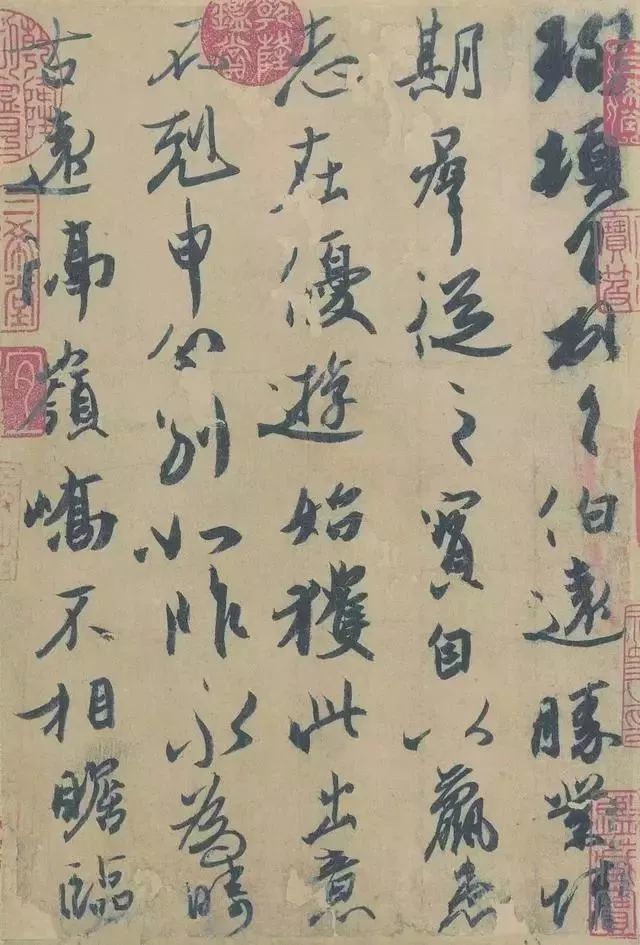 珣頓首頓首伯遠勝業情
期羣從之寳自以羸患
志在優遊始獲此出意
不剋申分別如昨永為疇
古遠隔嶺嶠不相瞻臨